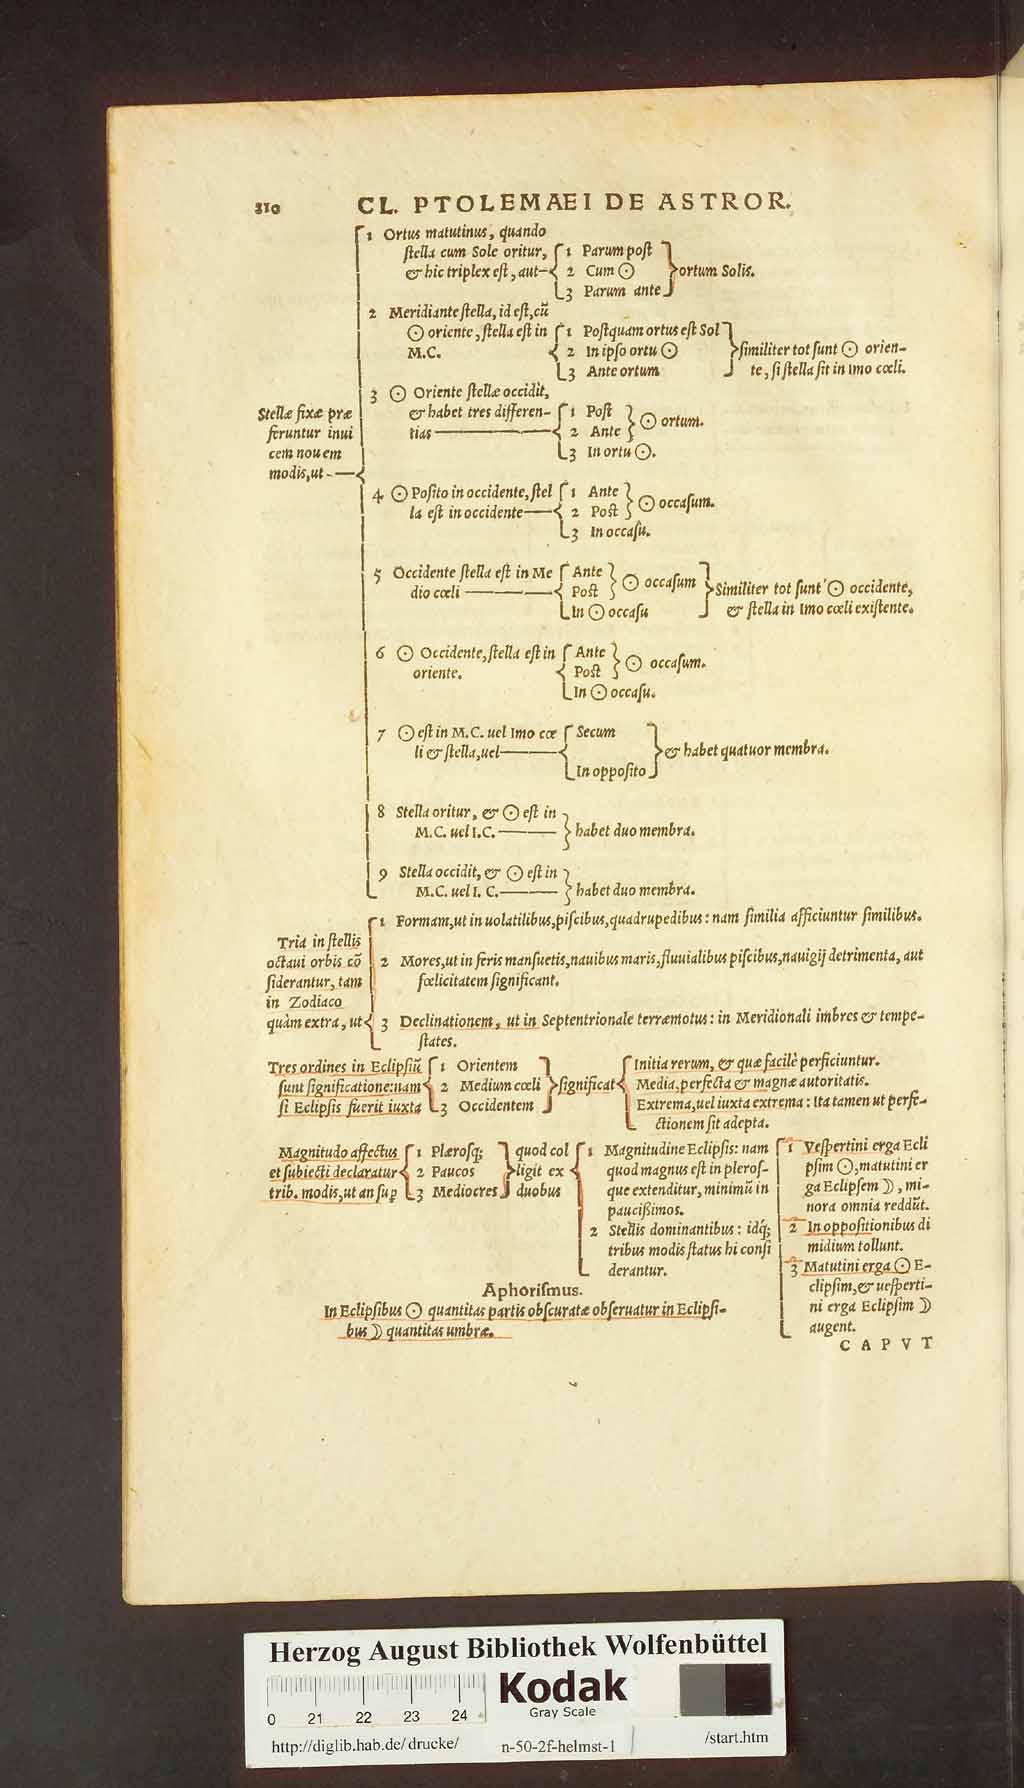 310 CL. PTOLEMAEI DE ASTROR.
Stellæ fixæ præ
feruntur inui
cem nouem
modis, ut
1 Ortus matutinus, quando
stella cum Sole oritur,
& hic triplex est, aut
1 Parum post
2 Cum ☉
3 Parum ante
ortum Solis.
2 Meridiante stella, id est, cũ
☉ oriente, stella est in
M.C.
1 Postquam ortus est Sol
2 In ipso ortu ☉
3 Ante ortum
similiter tot sunt ☉ orien-
te, si stella sit in Imo cœli.
3 ☉ Oriente stellæ occidit,
& habet tres differen-
tias
1 Post
2 Ante
☉ ortum.
3 In ortu ☉.
4 ☉ Posito in occidente, stel
la est in occidente
1 Ante
2 Post
☉ occasum.
3 In occasu.
5 Occidente stella est in Me
dio cœli
Ante
Post
☉ occasum
In ☉ occasu
Similiter tot sunt ☉ occidente,
& stella in Imo cœli existente.
6 ☉ Occidente, stella est in
oriente.
Ante
Post
☉ occasum.
In ☉ occasu.
7 ☉ est in M.C. uel Imo cœ
li & stella, uel
Secum
In opposito
& habet quatuor membra.
8 Stella oritur, & ☉ est in
M.C. uel I.C.
habet duo membra.
9 Stella occidit, & ☉ est in
M.C. uel I. C.
habet duo membra.
Tria in stellis
octaui orbis cõ
siderantur, tam
in Zodiaco
quàm extra, ut
1 Formam, ut in uolatilibus, piscibus, quadrupedibus: nam similia afficiuntur similibus.
2 Mores, ut in feris mansuetis, nauibus maris, fluuialibus piscibus, nauigij detrimenta, aut
fœlicitatem significant.
3 Declinationem, ut in Septentrionale terræmotus: in Meridionali imbres & tempe-
states.
Tres ordines in Eclipsiũ
sunt significatione: nam
si Eclipsis fuerit iuxta
1 Orientem
2 Medium cœli
3 Occidentem
significat
Initia rerum, & quæ facilè perficiuntur.
Media, perfecta & magnæ autoritatis.
Extrema, uel iuxta extrema: Ita tamen ut perfe-
ctionem sit adepta.
Magnitudo affectus
et subiecti declaratur
trib. modis, ut an sup
1 Plærosq;
2 Paucos
3 Mediocres
quod col
ligit ex
duobus
1 Magnitudine Eclipsis: nam
quod magnus est in pleros-
que extenditur, minimũ in
paucißimos.
2 Stellis dominantibus: idq́;
tribus modis status hi consi
derantur.
1 Vespertini erga Ecli
psim ☉, matutini er
ga Eclipsem ☽, mi-
nora omnia reddũt.
2 In oppositionibus di
midium tollunt.
3 Matutini erga ☉ E-
clipsim, & uesperti-
ni erga Eclipsim ☽
augent.
Aphorismus.
In Eclipsibus ☉ quantitas partis obscuratæ obseruatur in Eclipsi-
bus ☽ quantitas umbræ.
CAPVT
Herzog August Bibliothek Wolfenbüttel
Kodak
Gray Scale
0 21 22 23 24
http://diglib.hab.de/drucke/ n-50-2f-helmst-1 /start.htm